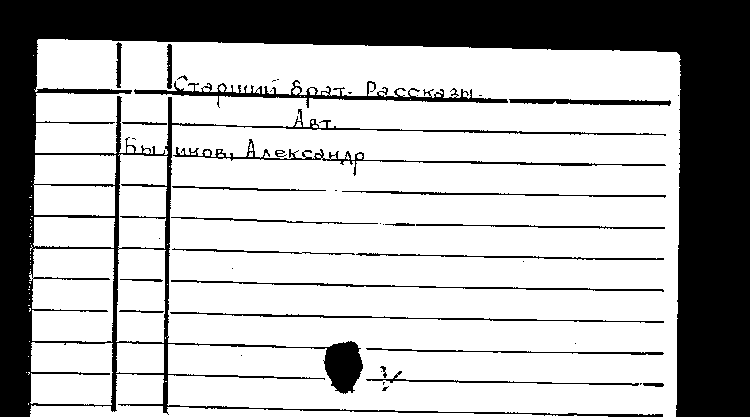 Старший брат. Рассказы.
Авт.
Былинов, Александр